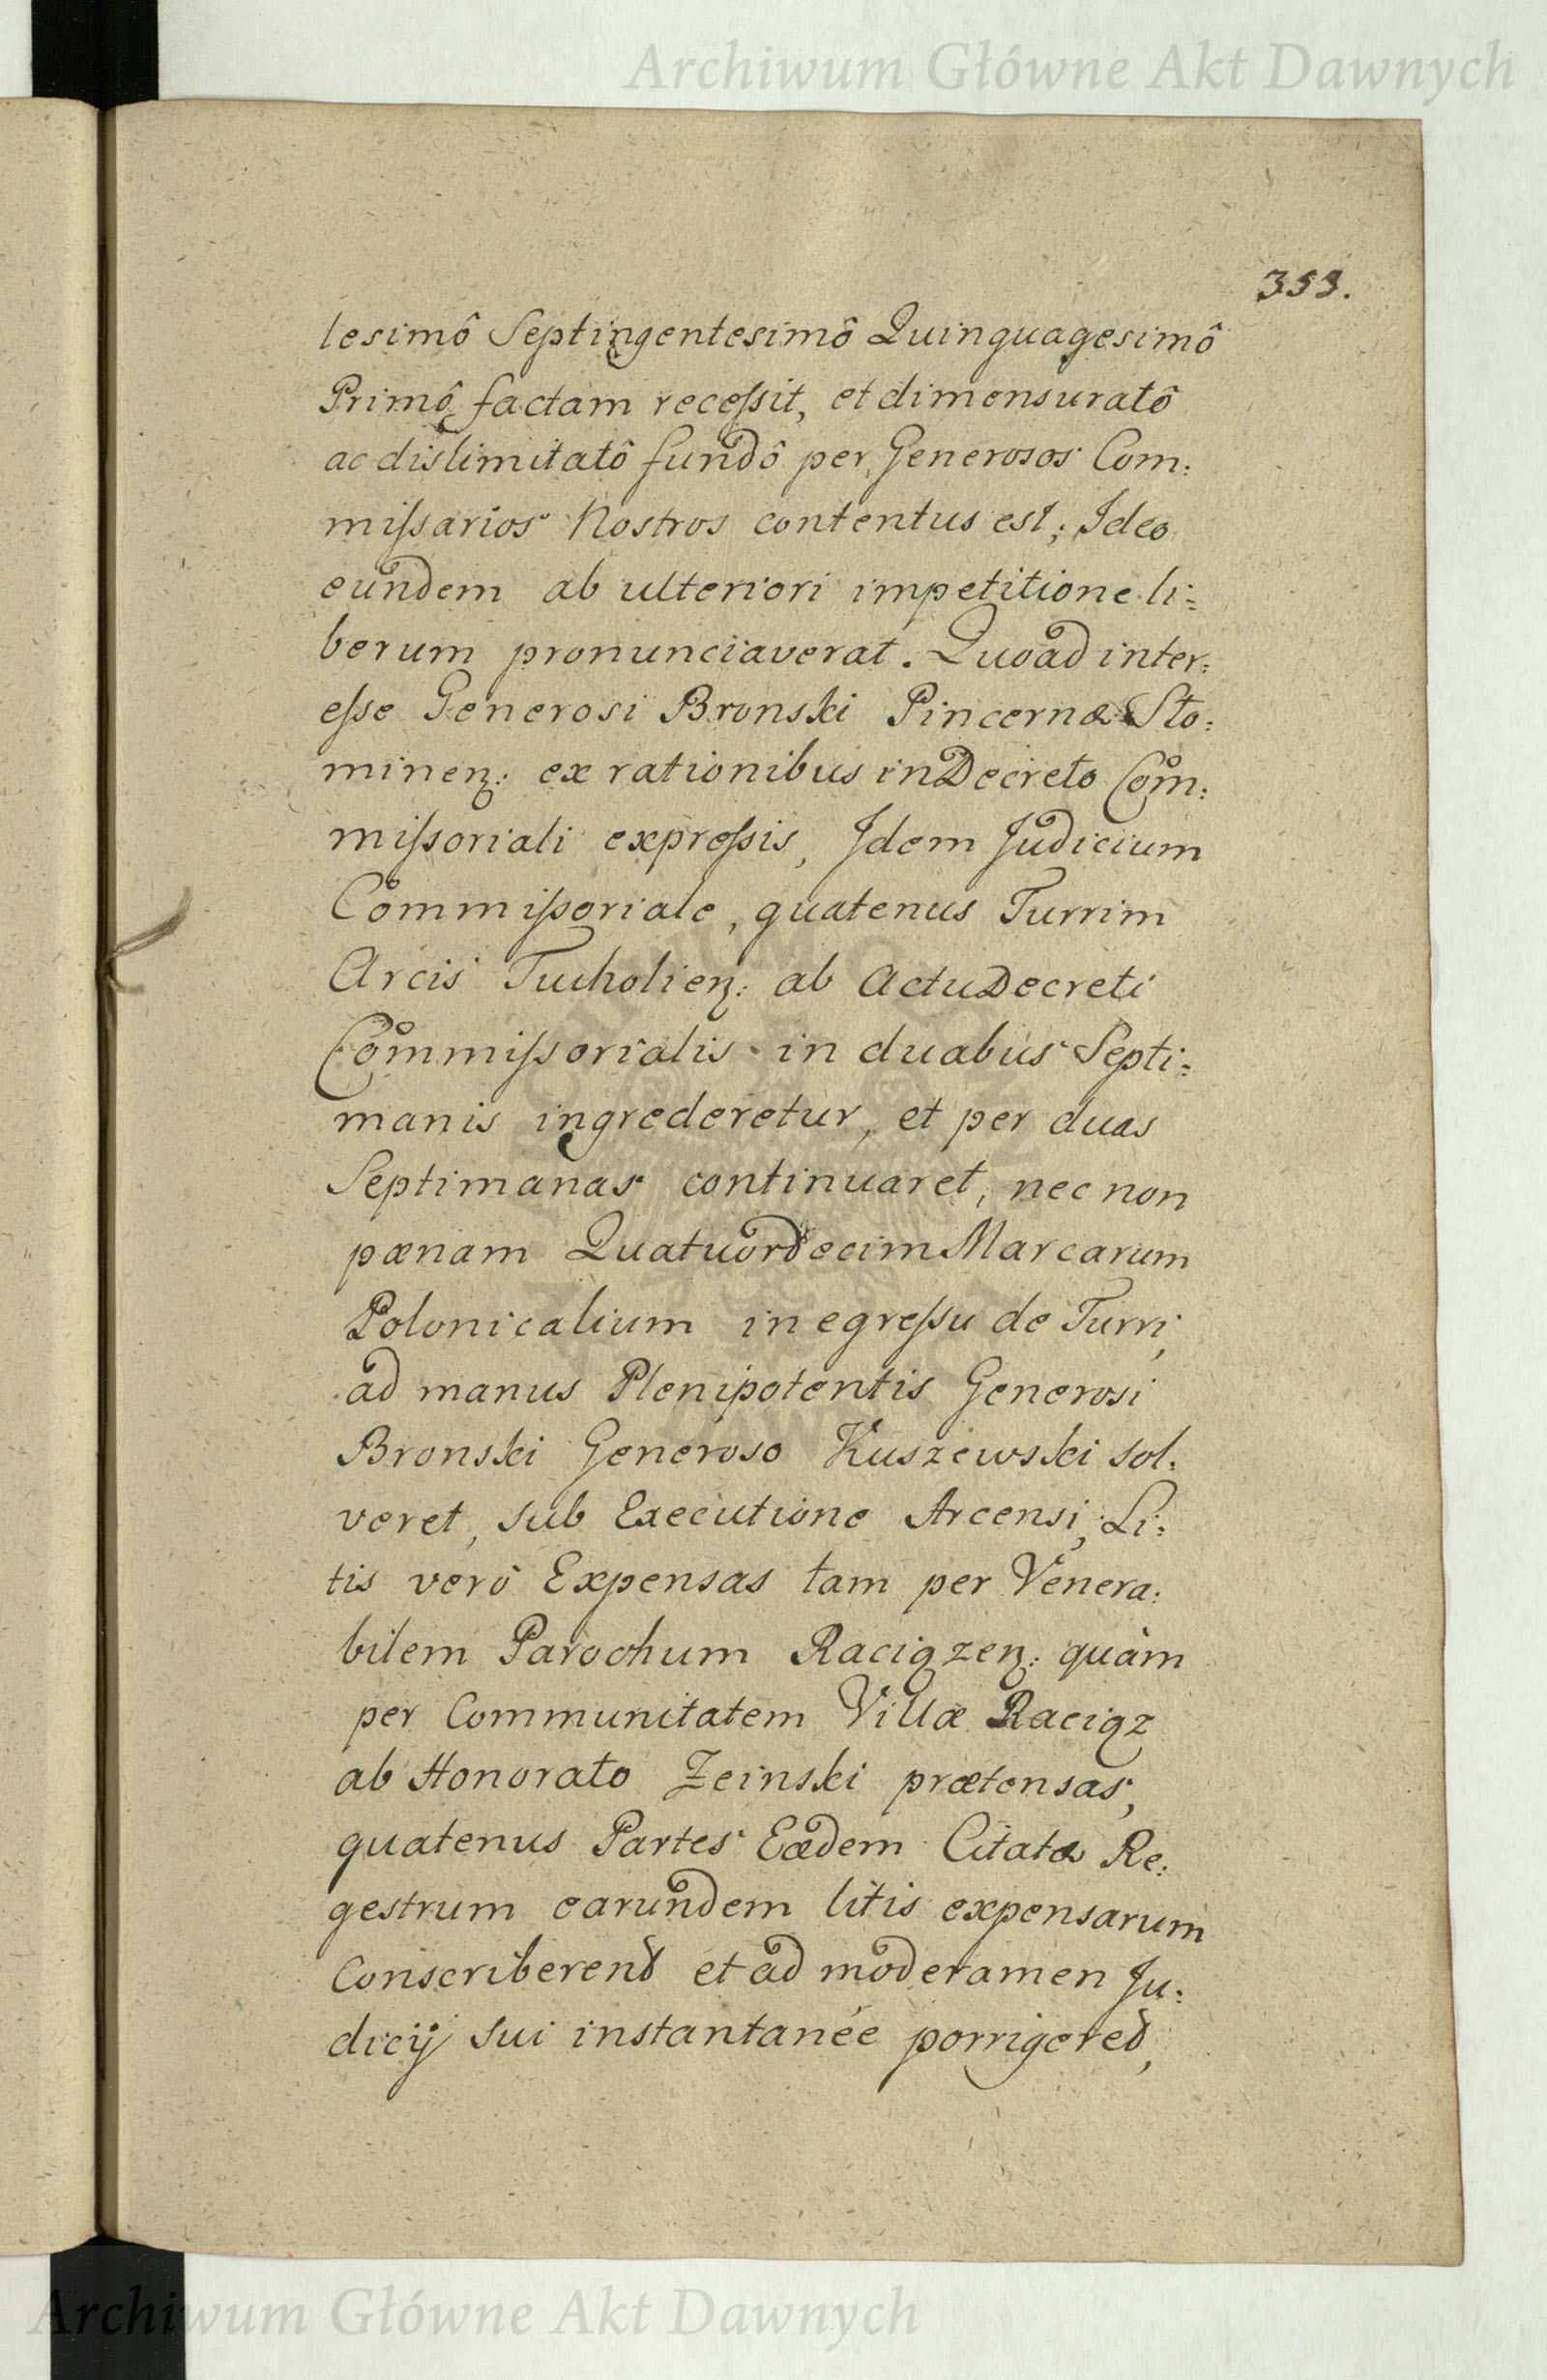 Archiwum Główne Akt Dawnych
353.
lesimô Septingentesimô Quinquagesimô
Primô factam receſsit, et dimensuratô
ac dislimitatô fundô per Generosos Com:
miſsarios Nostros contentus est; Ideo
eundem ab ulteriori impetitione li:
berum pronunciaverat. Quoad inter:
eſse Generosi Bronski Pincernæ Sto:
minen: ex rationibus in Decreto Com:
miſsoriali expreſsis, Idem Judicium
Commiſsoriale, quatenus Turrim
Arcis Tucholien: ab Actu Decreti
Commiſsorialis in duabus Septi:
manis ingrederetur, et per duas
Septimanas continuaret, nec non
pænam Quatuordecim Marcarum
Polonicalium in egreſsu de Turri,
ad manus Plenipotentis Generosi
Bronski Generoso Kuszewski sol:
veret, sub Executione Arcensi, Li:
tis verô Expensas tam per Venera:
bilem Parochum Raciązen: quàm
per Communitatem Villæ Raciąz
ab Honorato Zeinski prætensas,
quatenus Partes Eædem Citatæ Re:
gestrum earundem litis expensarum
Conscriberend et ad moderamen Ju:
dicij sui instantanée porrigered,
Archiwum Główne Akt Dawnych